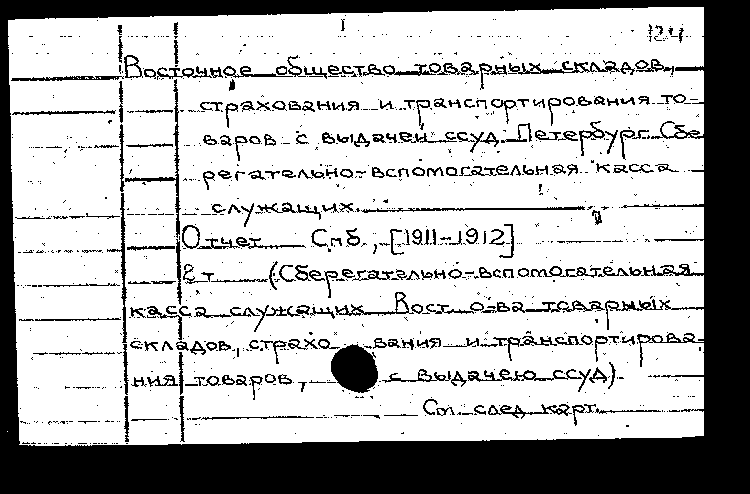 124
Восточное общество товарных складов,
страхования и транспортирования то-
варов с выдачей ссуд. Петербург. Сбе
регательно-вспомогательная касса
служащих.
Отчет Спб., [1911-1912]
2 т (Сберегательно-вспомогательная
касса служащих Вост. о-ва товарных
складов, страхо вания и транспортирова-
ния товаров, с выдачею ссуд)
См. след. карт.